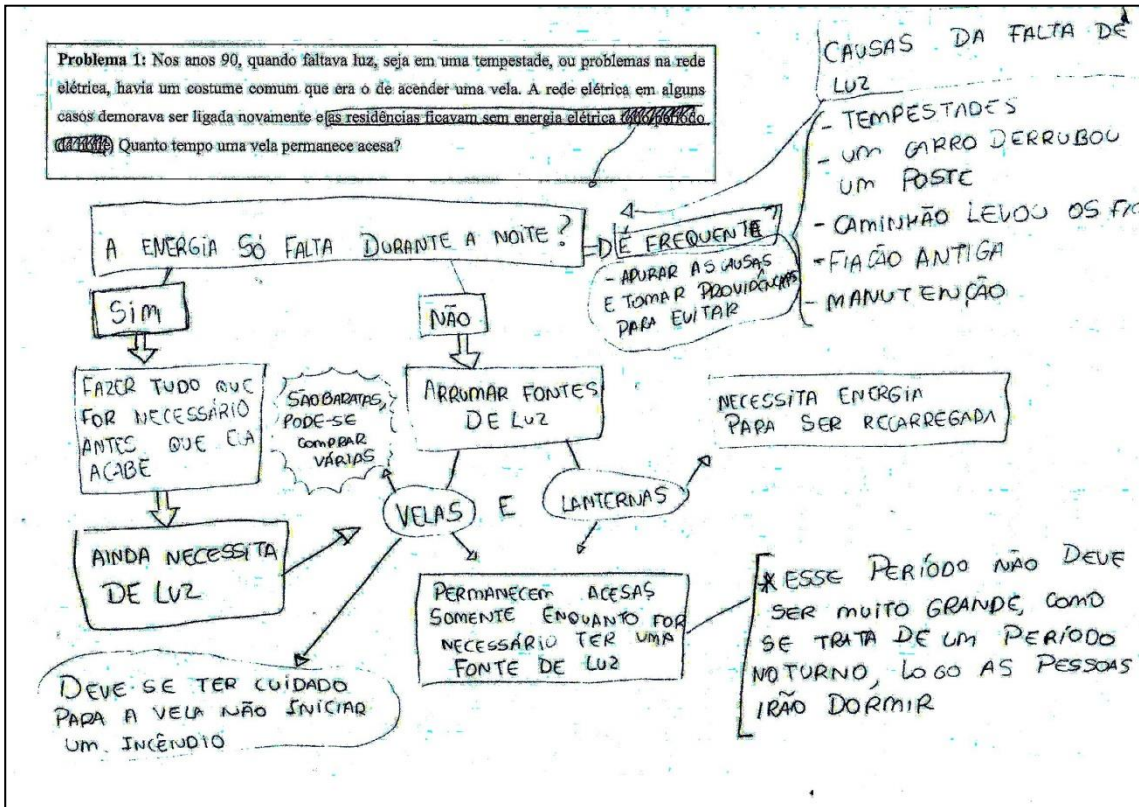 Problema 1: Nos anos 90, quando faltava luz, seja em uma tempestade, ou problemas na rede
elétrica, havia um costume comum que era o de acender uma vela. A rede elétrica em alguns
casos demorava ser ligada novamente e as residências ficavam sem energia elétrica
Quanto tempo uma vela permanece acesa?
CAUSAS DA FALTA DE
LUZ
- TEMPESTADES
- UM CARRO DERRUBOU
UM POSTE
- CAMINHÃO LEVOU OS
- FIAÇÃO ANTIGA
- MANUTENÇÃO
A ENERGIA SÓ FALTA DURANTE A NOITE?
É FREQUENTE?
- APURAR AS CAUSAS
E TOMAR PROVIDÊNCIAS
PARA EVITAR
SIM
NÃO
FAZER TUDO QUE
FOR NECESSÁRIO
ANTES QUE ELA
ACABE
SÃO BARATAS,
PODE-SE
COMPRAR
VÁRIAS
ARRUMAR FONTES
DE LUZ
NECESSITA ENERGIA
PARA SER RECARREGADA
VELAS E LANTERNAS
AINDA NECESSITA
DE LUZ
PERMANECEM ACESAS
SOMENTE ENQUANTO FOR
NECESSÁRIO TER UMA
FONTE DE LUZ
* ESSE PERÍODO NÃO DEVE
SER MUITO GRANDE, COMO
SE TRATA DE UM PERÍODO
NOTURNO, LOGO AS PESSOAS
IRÃO DORMIR
DEVE-SE TER CUIDADO
PARA A VELA NÃO INICIAR
UM INCÊNDIO